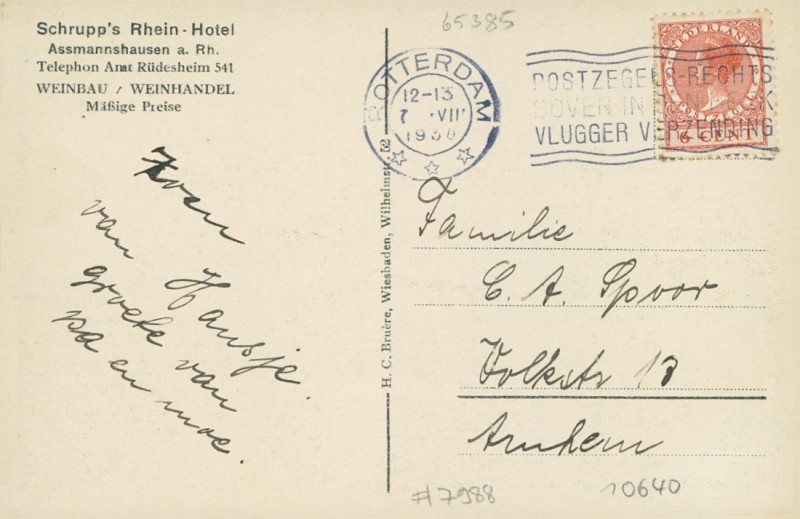 Schrupp's Rhein-Hotel
Assmannshausen a. Rh.
Telephon Amt Rüdesheim 541
WEINBAU / WEINHANDEL
Mäßige Preise
Zoen
van Hansje.
groete van
pa en moe.
H. C. Bruère, Wiesbaden, Wilhelmstr. 52
65385
ROTTERDAM
12-13
7 VIII
1930
POSTZEGELS RECHTS
BOVEN IN
VLUGGER VERZENDING
NEDERLAND
6 CENT
Familie
C. A. Spoor
Volkstr 13
Arnhem
#7988
10640